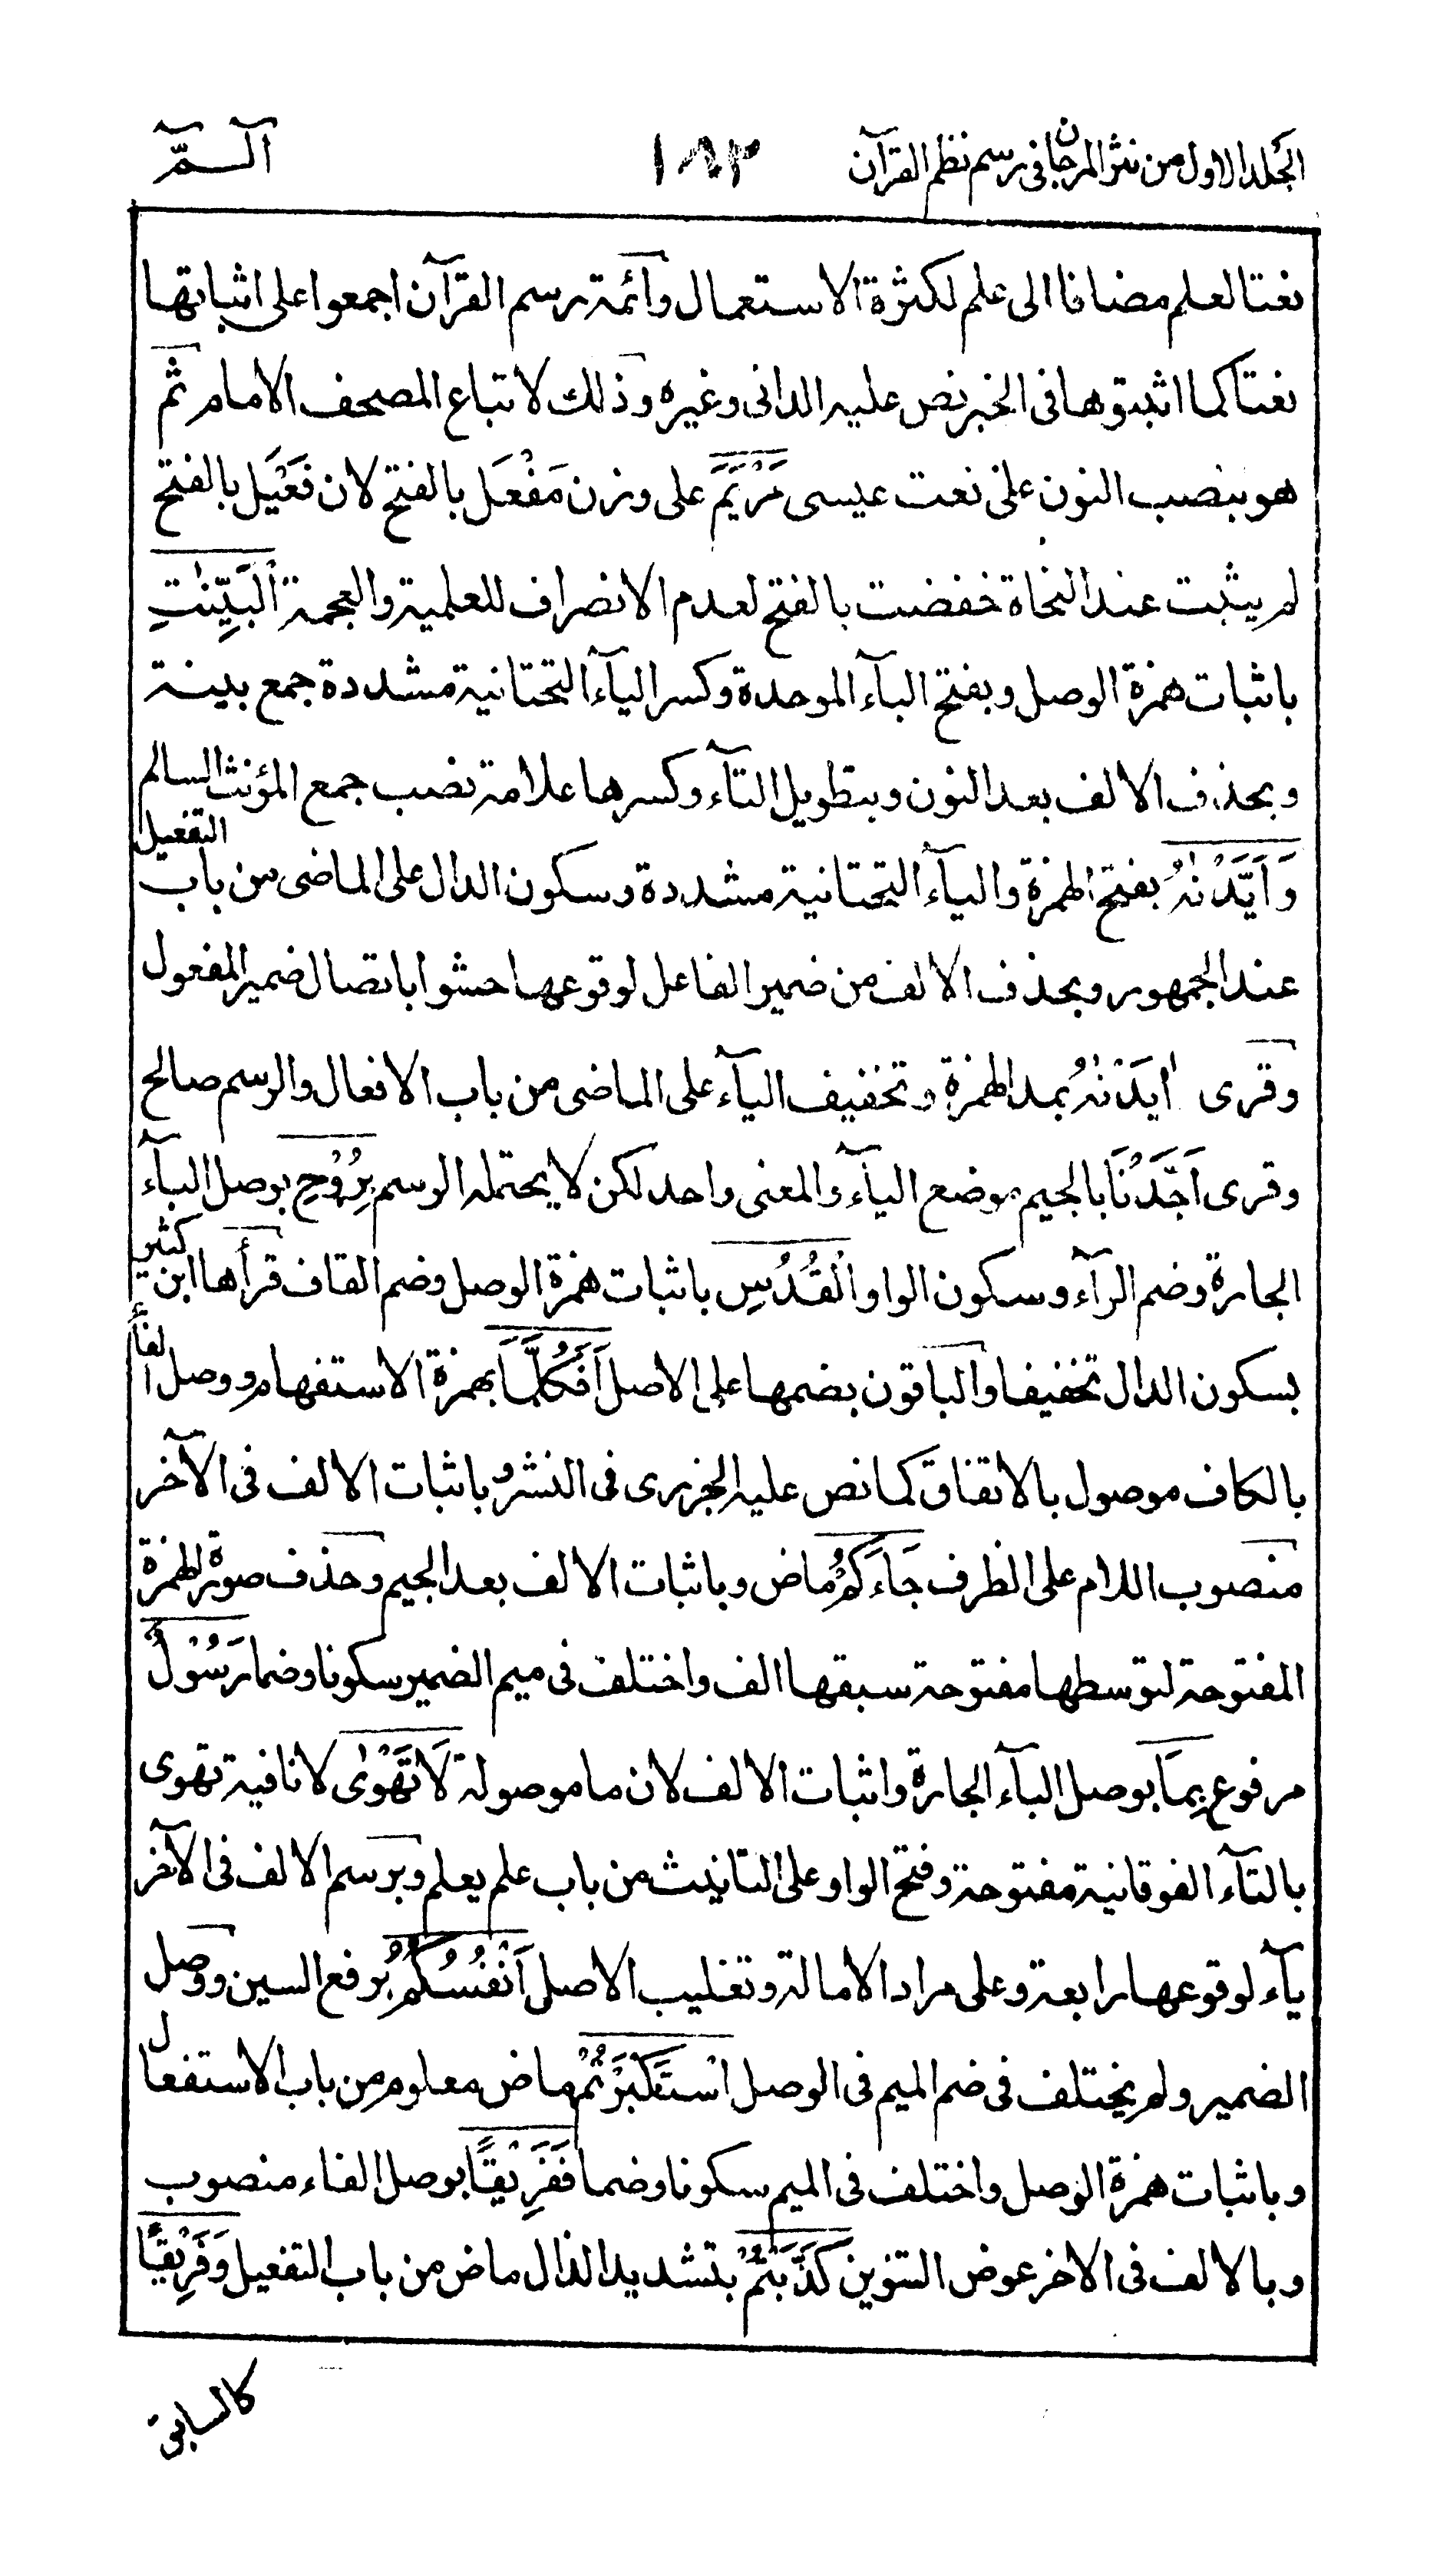 الجلد الاول من نثر المرجان فى رسم نظم القرآن ١٨٣ آلـمّ
نعتا لعلم مضافا الى علم لكثرة الاستعمال وأئمة رسم القرآن اجمعوا على اثباتها
نعتا كما اثبتوها فى الخبر نص عليه الدانى وغيره وذلك لاتباع المصحف الامام ثم
هو بنصب النون على نعت عيسى مَرْيَمَ على وزن مَفْعَل بالفتح لان فَعْيَل بالفتح
لم يثبت عند النحاة خفضت بالفتح لعدم الانصراف للعلمية والعجمة الْبَيِّنٰتِ
باثبات همزة الوصل وبفتح البآء الموحدة وكسر اليآء التحتانية مشددة جمع بينة
وبحذف الالف بعد النون وبتطويل التآء وكسرها علامة نصب جمع المؤنث السالم
وَاَيَّدْنٰهُ بفتح الهمزة واليآء التحتانية مشددة وسكون الدال على الماضى من باب التفعيل
عند الجمهور وبحذف الالف من ضمير الفاعل لوقوعها حشوا باتصال ضمير المفعول
وقرى اٰيَدْنٰهُ بمد الهمزة وتخفيف اليآء على الماضى من باب الافعال والرسم صالح
وقرى اَجَّدْنَا بالجيم موضع اليآء والمعنى واحد لكن لا يحتمله الرسم بِرُوْحِ بوصل البآء
الجارة وضم الرآء وسكون الواو الْقُدُسِ باثبات همزة الوصل وضم القاف قرأها ابن كثير
بسكون الدال تخفيفا والباقون بضمها على الاصل اَفَكُلَّمَا بهمزة الاستفهام ووصل الفاء
بالكاف موصول بالاتفاق كما نص عليه الجزرى فى النشر وباثبات الالف فى الآخر
منصوب اللام على الظرف جَاءَكُمْ ماض وباثبات الالف بعد الجيم وحذف صورة الهمزة
المفتوحة لتوسطها مفتوحة سبقها الف واختلف فى ميم الضمير سكونا وضما رَسُوْلٌ
مرفوع بِمَا بوصل البآء الجارة واثبات الالف لان ما موصولة لَا تَهْوٰى لا نافية تهوى
بالتآء الفوقانية مفتوحة وفتح الواو على التانيث من باب علم يعلم وبرسم الالف فى الآخر
يآء لوقوعها رابعة وعلى مراد الامالة وتغليب الاصل اَنْفُسُكُمْ برفع السين ووصل
الضمير ولم يختلف فى ضم الميم فى الوصل اسْتَكْبَرْتُمْ ماض معلوم من باب الاستفعال
وباثبات همزة الوصل واختلف فى الميم سكونا وضما فَفَرِيْقًا بوصل الفاء منصوب
وبالالف فى الاخر عوض التنوين كَذَّبْتُمْ بتشديد الذال ماض من باب التفعيل وَفَرِيْقًا
كالسابق